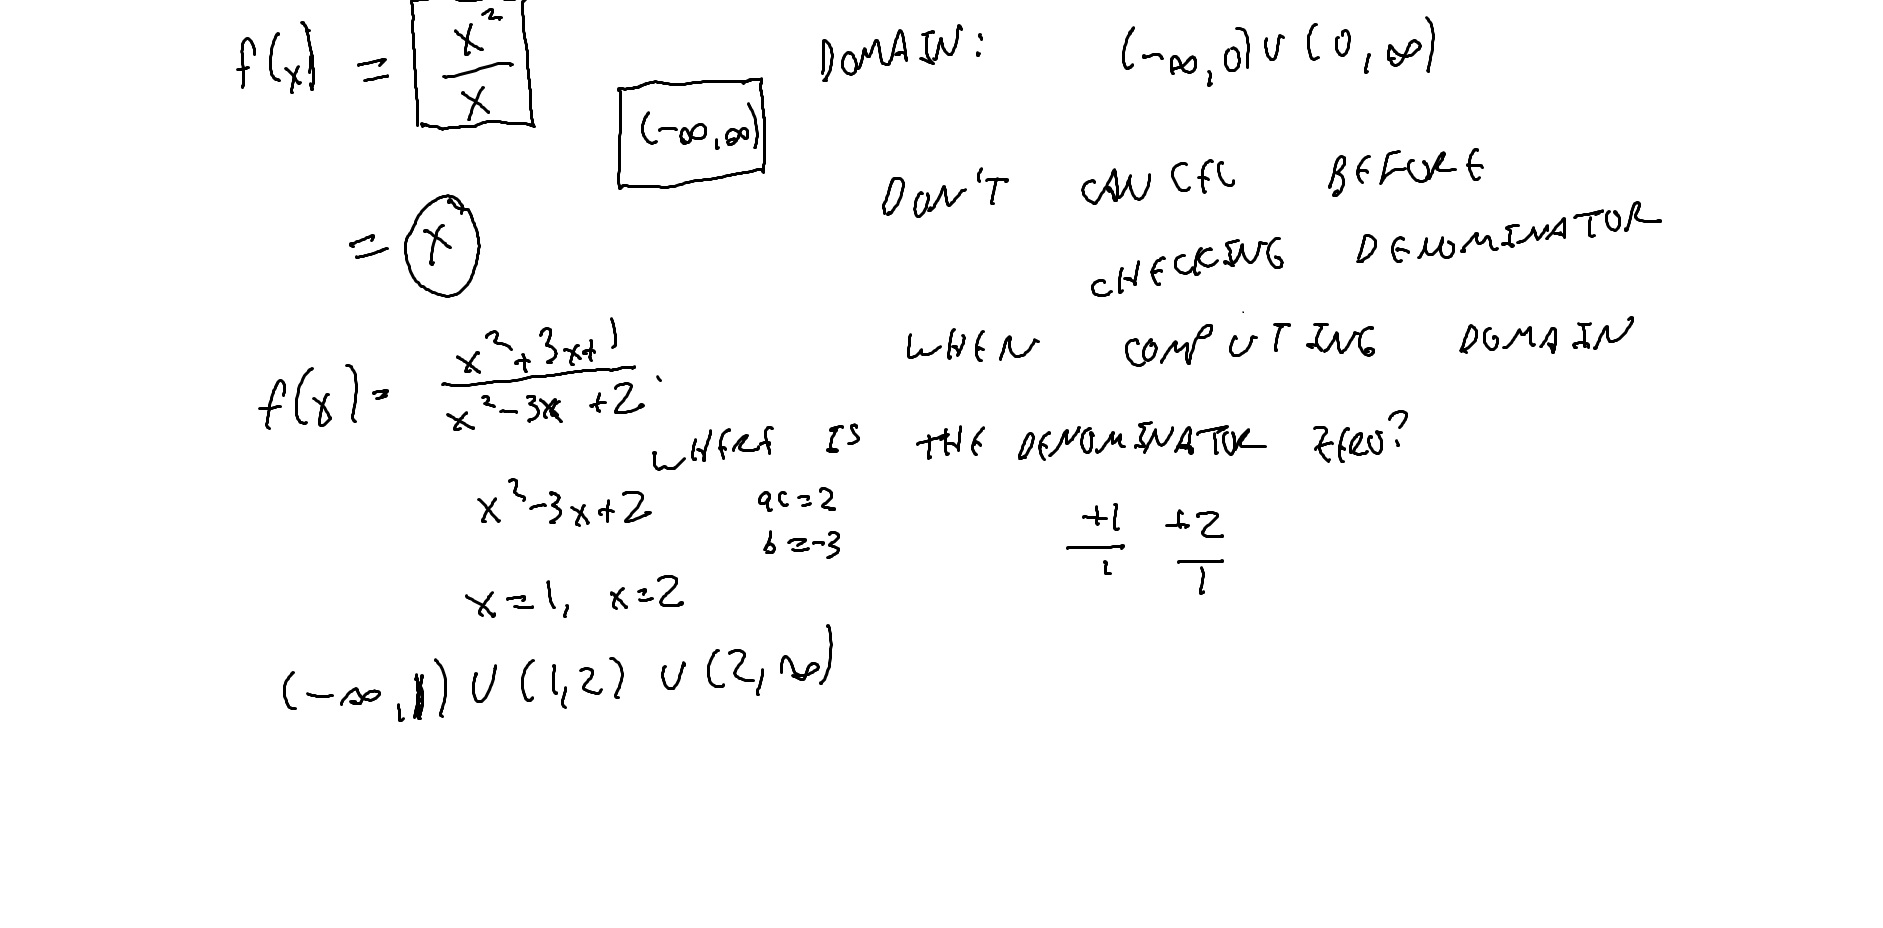 f(x) = x²/x DOMAIN: (-∞,0) ∪ (0,∞)
(-∞,∞)
= x
DON'T CANCEL BEFORE
CHECKING DENOMINATOR
WHEN COMPUTING DOMAIN
f(x) = (x²+3x+1)/(x²-3x+2)
WHERE IS THE DENOMINATOR ZERO?
x²-3x+2 ac=2 +1/1 +2/1
b=-3
x=1, x=2
(-∞,1) ∪ (1,2) ∪ (2,∞)